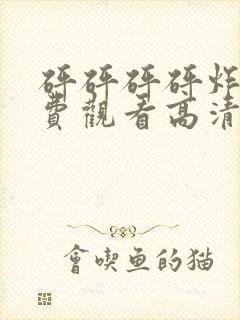 砰砰砰砰炸
費觀看高清
會喫魚的猫